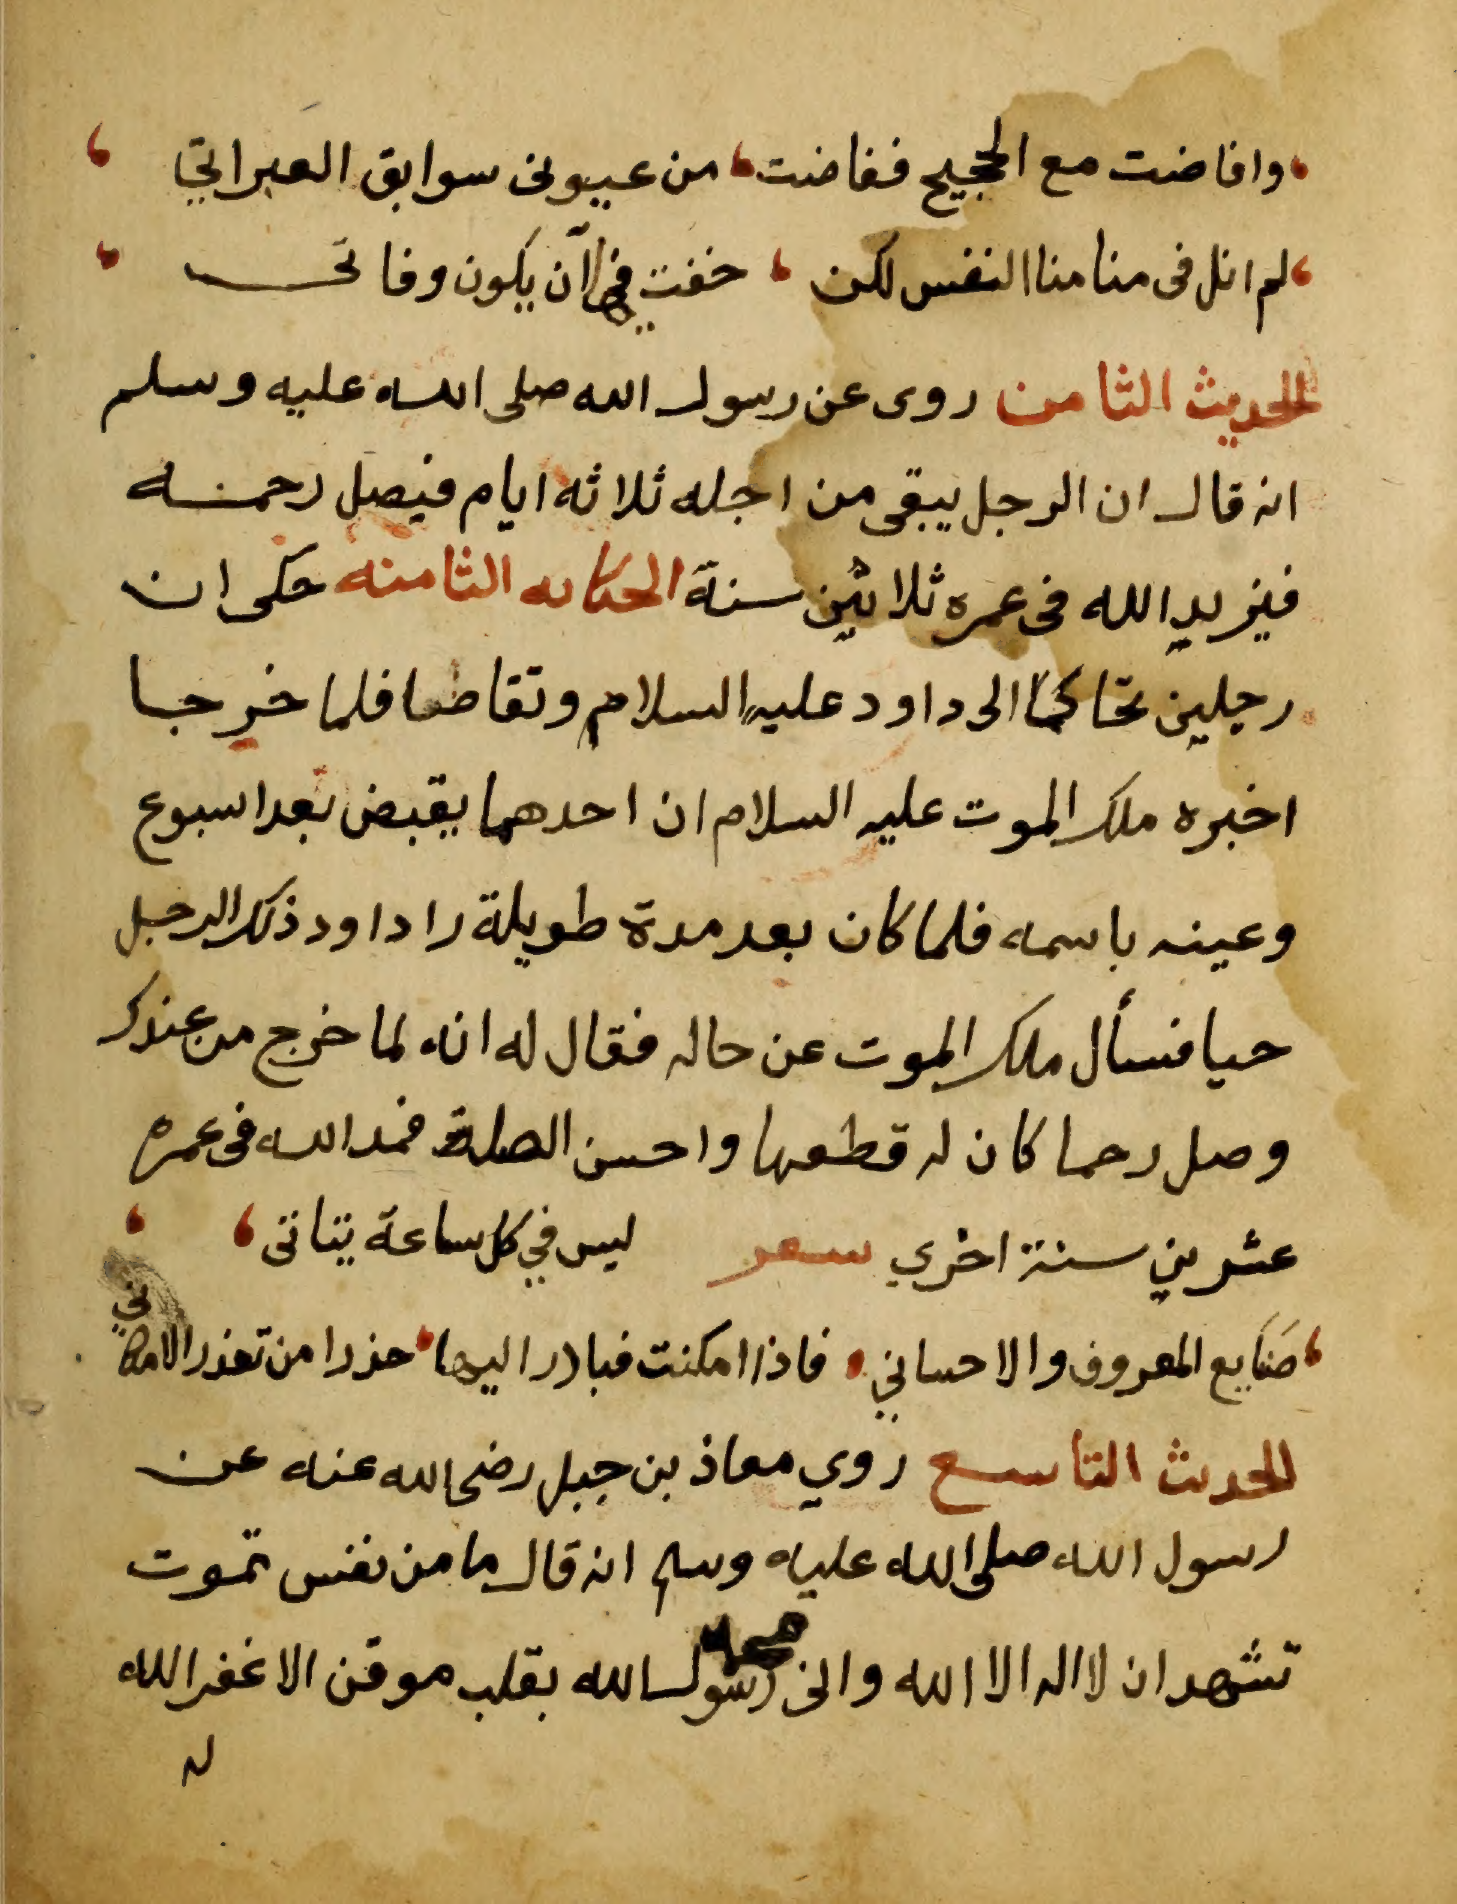 وافاضت مع الحجيج ففاضت من عيونى سوابق العبراتي
لم انل فى منا منا النفس لكن خفت فيها آن يكون وفاتى
الحديث الثامن روى عن رسول الله صلى الله عليه وسلم
انه قال ان الرجل يبقى من اجله ثلاثه ايام فيصل رحمه
فيزيد الله فى عمره ثلاثين سنة الحكايه الثامنه حكى ان
رجلين تحاكما الى داود عليه السلام وتقاضا فلما خرجا
اخبره ملك الموت عليه السلام ان احدهما يقبض بعد اسبوع
وعينه باسمه فلما كان بعد مدة طويلة راداود ذلك الرجل
حيا فسأل ملك الموت عن حاله فقال له انه لما خرج من عندك
وصل رحما كان له قطعها واحسن الصلة فمد الله فى عمره
عشرين سنة اخري شعر ليس في كل ساعة يتاتى
صنايع المعروف والاحساني فاذا امكنت فبادر اليها حذرا من تعذر الامكاني
الحديث التاسع روي معاذ بن جبل رضى الله عنه عن
رسول الله صلى الله عليه وسلم انه قال ما من نفس تموت
تشهد ان لا اله الا الله وانى رسول الله بقلب موقن الا غفر الله
له